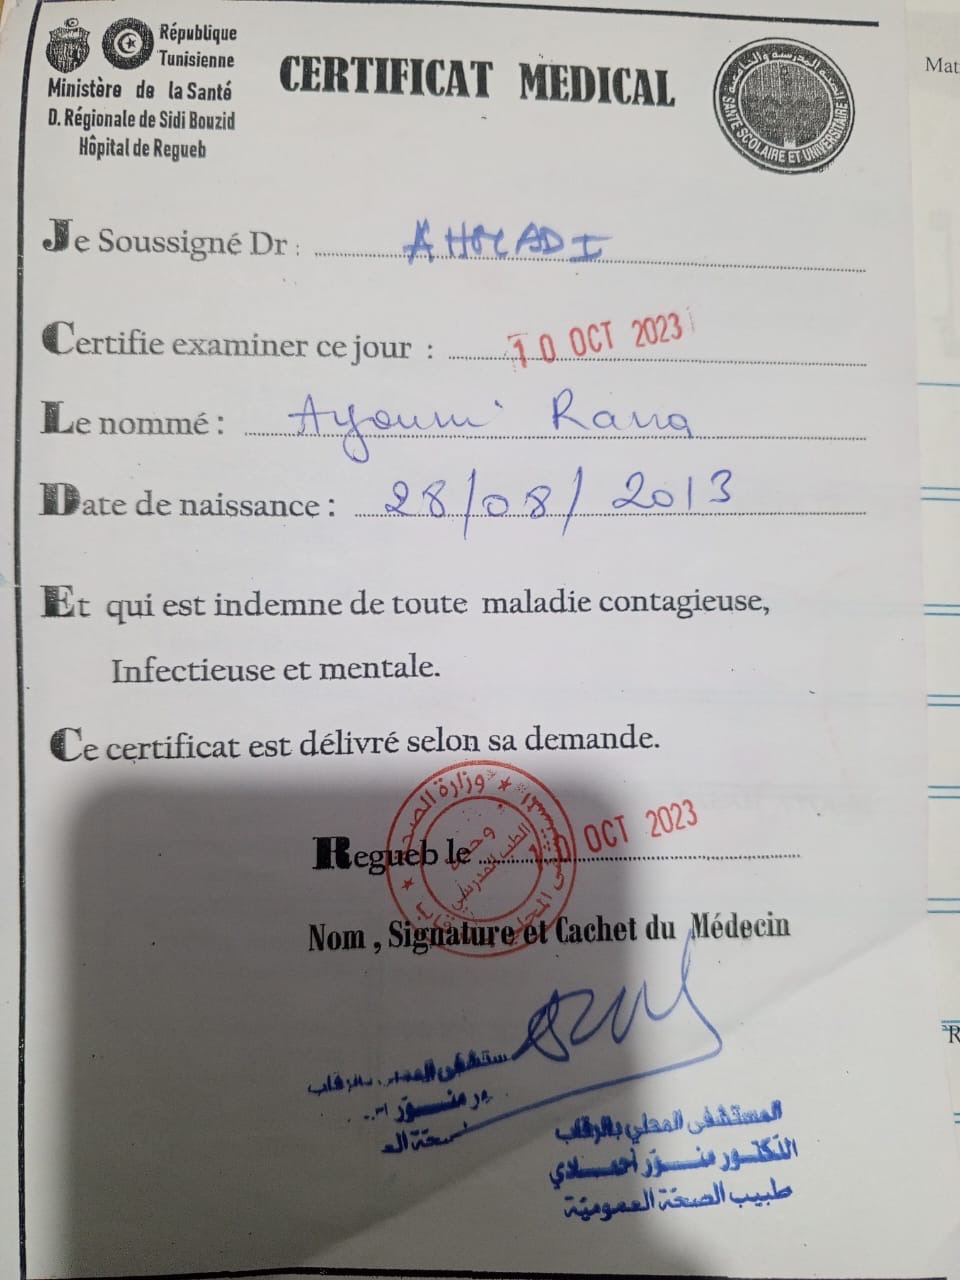 République
Tunisienne
Ministère de la Santé
D. Régionale de Sidi Bouzid
Hôpital de Regueb
CERTIFICAT MEDICAL
الصحة المدرسية والجامعية
SANTÉ SCOLAIRE ET UNIVERSITAIRE
Mat
Je Soussigné Dr : AHMADI
Certifie examiner ce jour : 10 OCT 2023
Le nommé : Ayouni Rana
Date de naissance : 28/08/2013
Et qui est indemne de toute maladie contagieuse,
Infectieuse et mentale.
Ce certificat est délivré selon sa demande.
وزارة الصحة
الطب المدرسي
Regueb le 10 OCT 2023
Nom , Signature et Cachet du Médecin
المستشفى المحلي بالرقاب
الدكتور منوّر أحمادي
طبيب الصحة العمومية